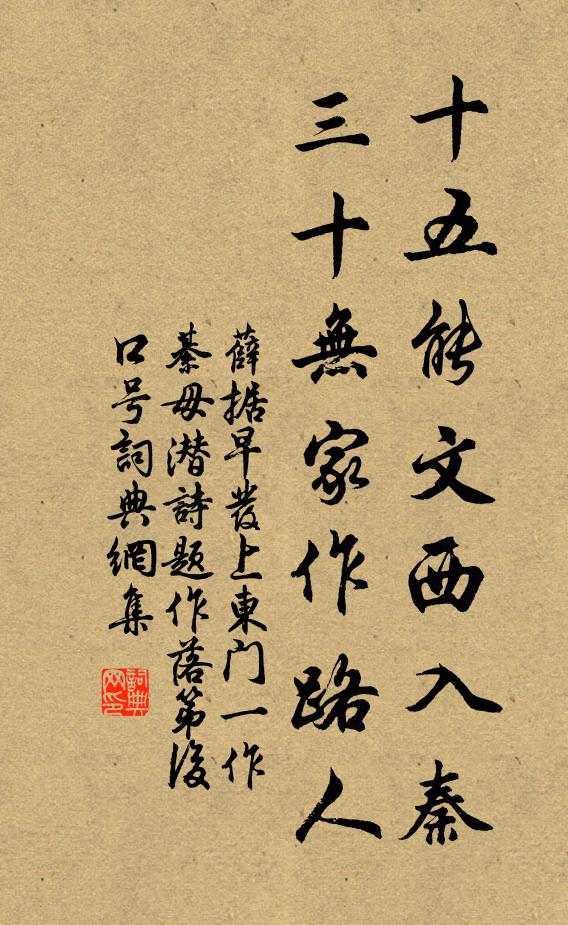 十五能文西入秦
三十無家作路人
薛据早發上東門一作
綦毋潜詩題作落第後
口号詞典網集
詞典网印